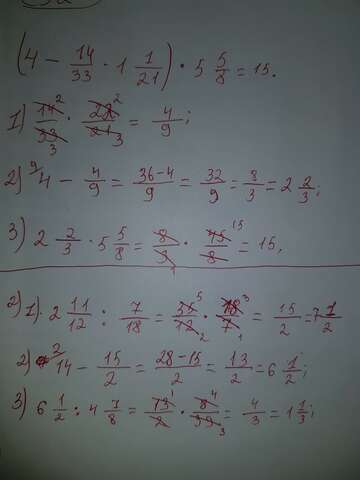 (4 - 14/33 · 1 1/21) · 5 5/8 = 15.
1) 14/33 · 22/21 = 4/9;
2) 4 - 4/9 = 36-4/9 = 32/9 = 8/3 = 2 2/3;
3) 2 2/3 · 5 5/8 = 8/3 · 45/8 = 15.
2) 1). 2 11/12 : 7/18 = 35/12 · 18/7 = 15/2 = 7 1/2
2) 14 - 15/2 = 28-15/2 = 13/2 = 6 1/2;
3) 6 1/2 : 4 7/8 = 13/2 · 8/39 = 4/3 = 1 1/3;